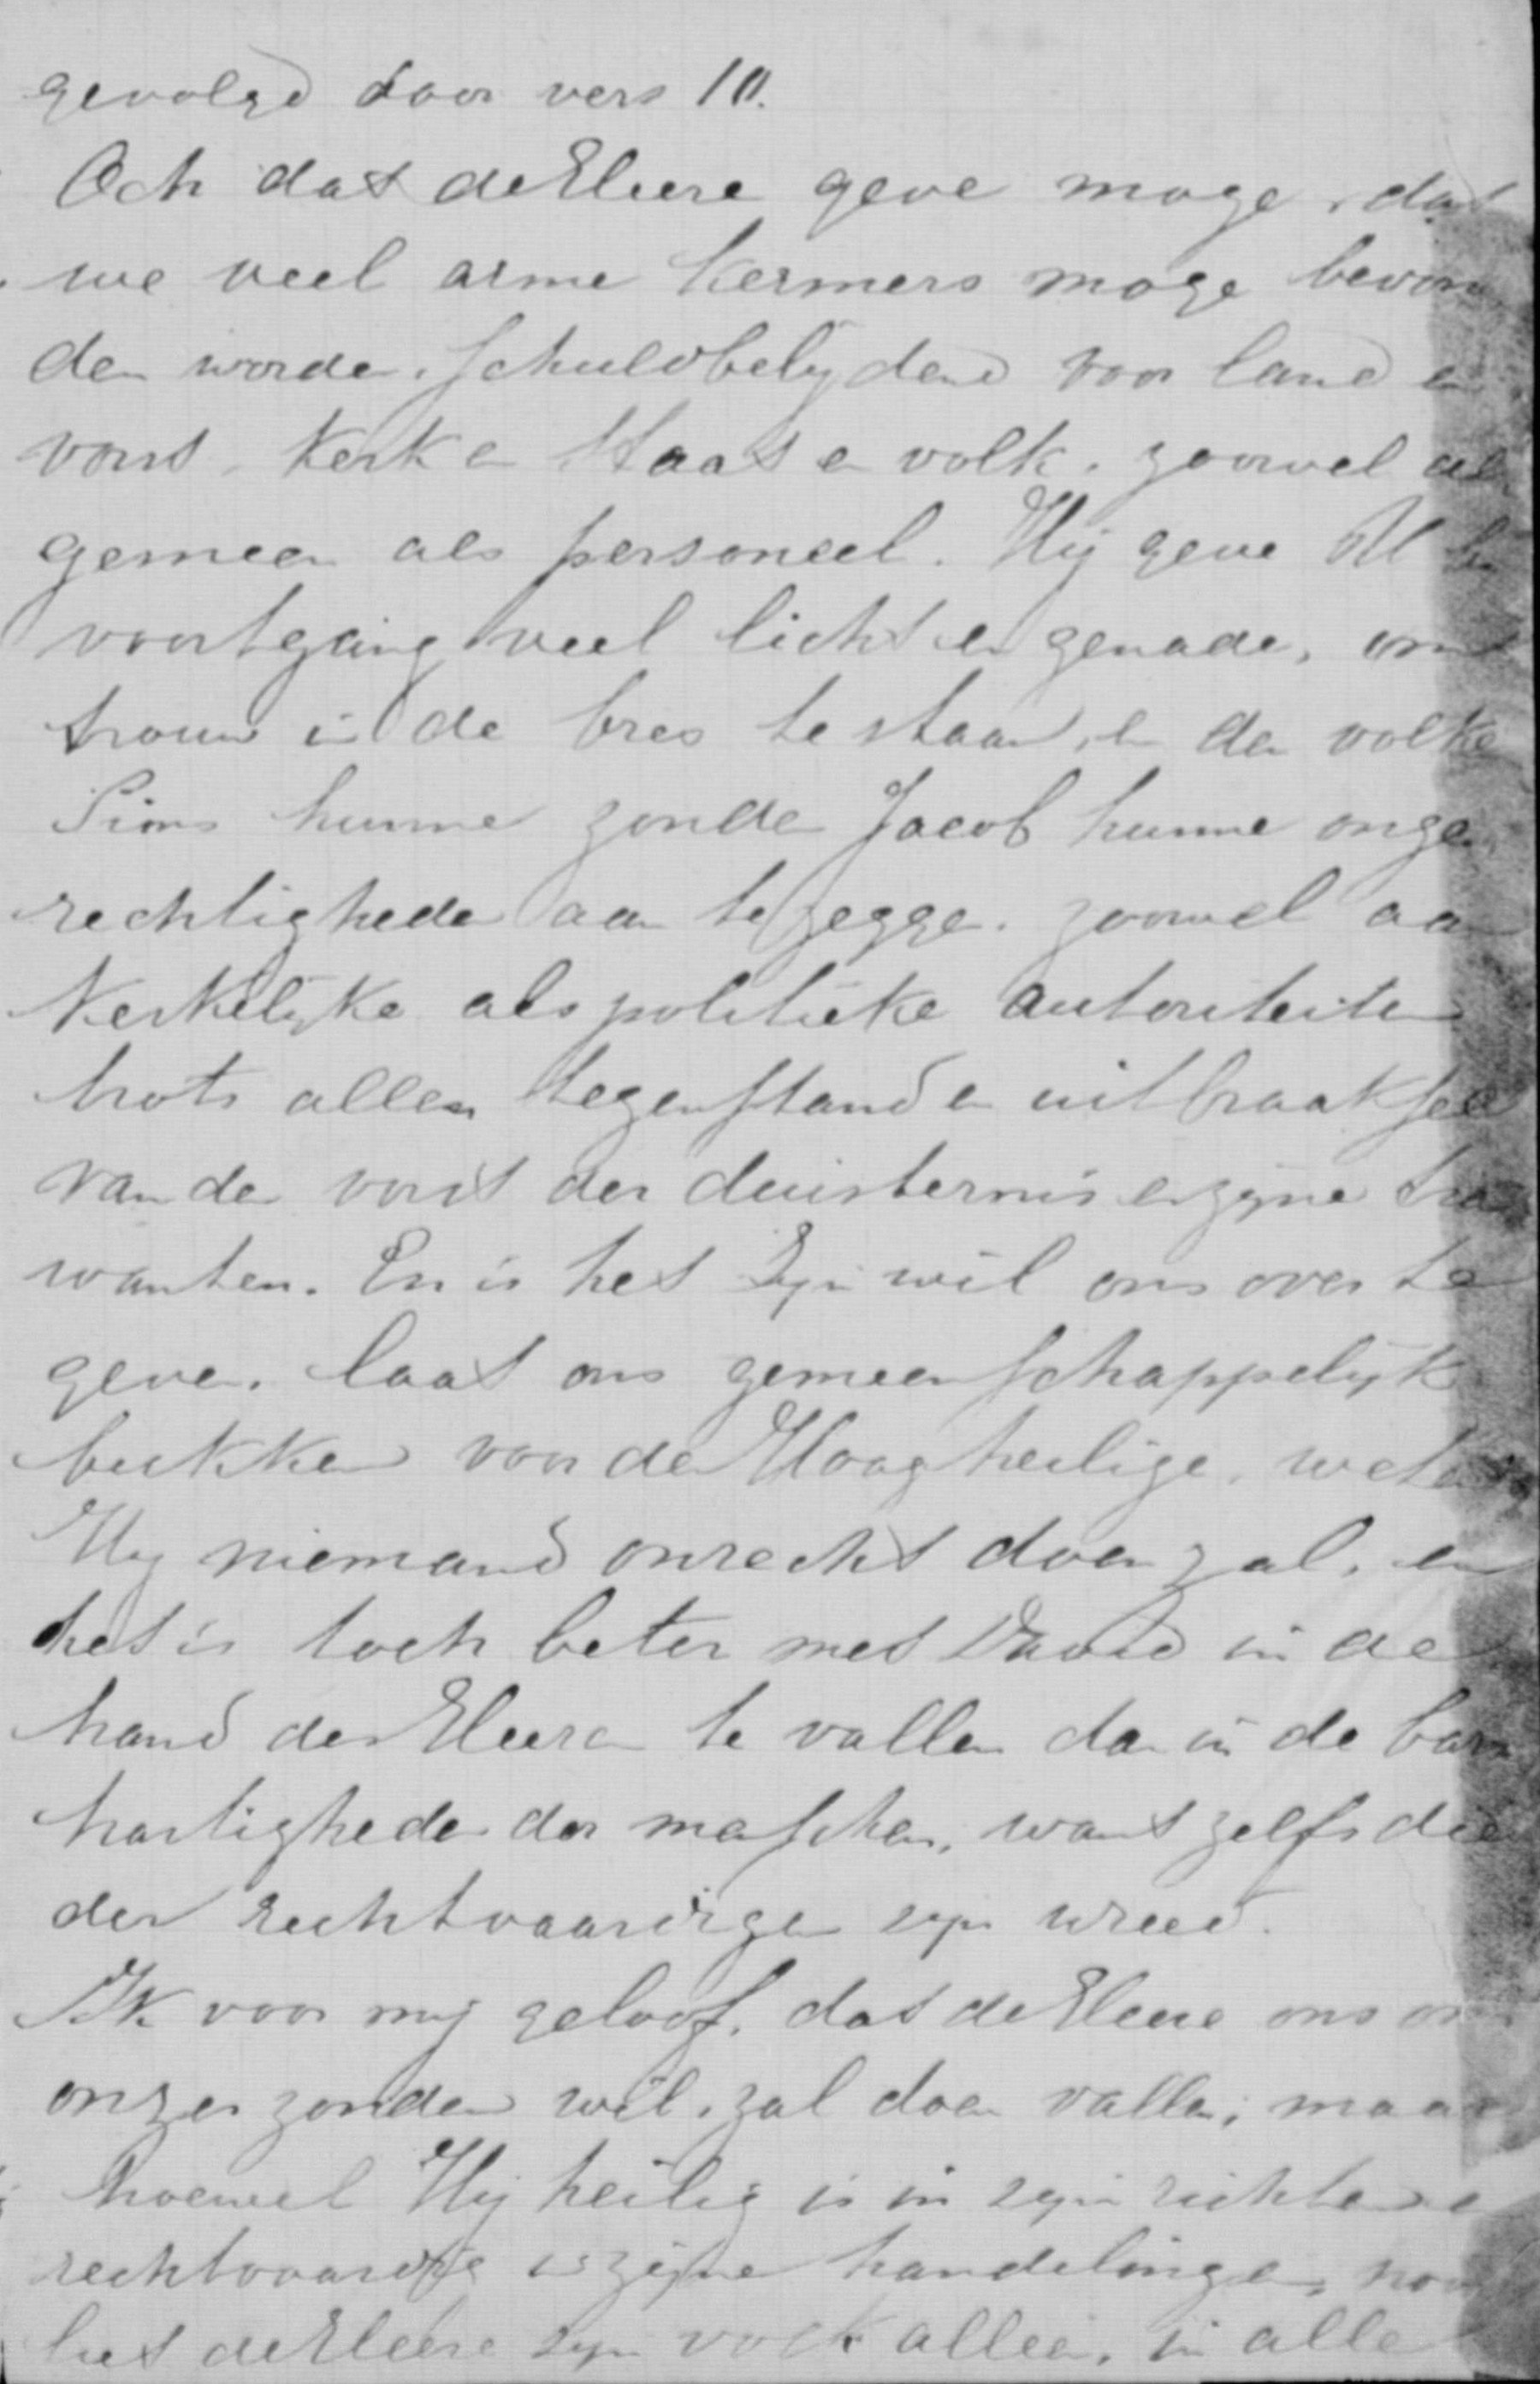 gevolgd door vers 10.
Och dat de Heere geve moge, dat
we veel arme kermers moge bevon
den worde, schuldbelijdend voor land en
vorst, Kerk en Staat en volk, zoowel al
gemeen als personeel. Hij geve U bij
voortgang veel licht en genade, om
trouw in de bres te staan, en den volke
Sions hunne zonde Jacob hunne onge
rechtighede aan te zegge, zoowel aan
Kerkelijke als politieke autoriteiten
trots allen tegenstand en uitbraaksel
van den vorst der duisternis en zijne tra
wanten. En is het Zijn wil ons over te
geven, laat ons gemeenschappelijk
bukken voor den Hoogheilige, wetend
Hij niemand onrecht doen zal, en
het is toch beter met David in de
hand des Heeren te vallen dan in de barm
hartigheden der menschen, want zelfs die
der rechtvaardigen zijn wreed.
Ik voor mij geloof, dat de Heere ons om
onzer zonden wil, zal doen vallen; maar
hoewel Hij heilig is in zijn richten en
rechtvaardig in zijne handelingen, nooit
liet de Heere zijn volk alleen, in alle